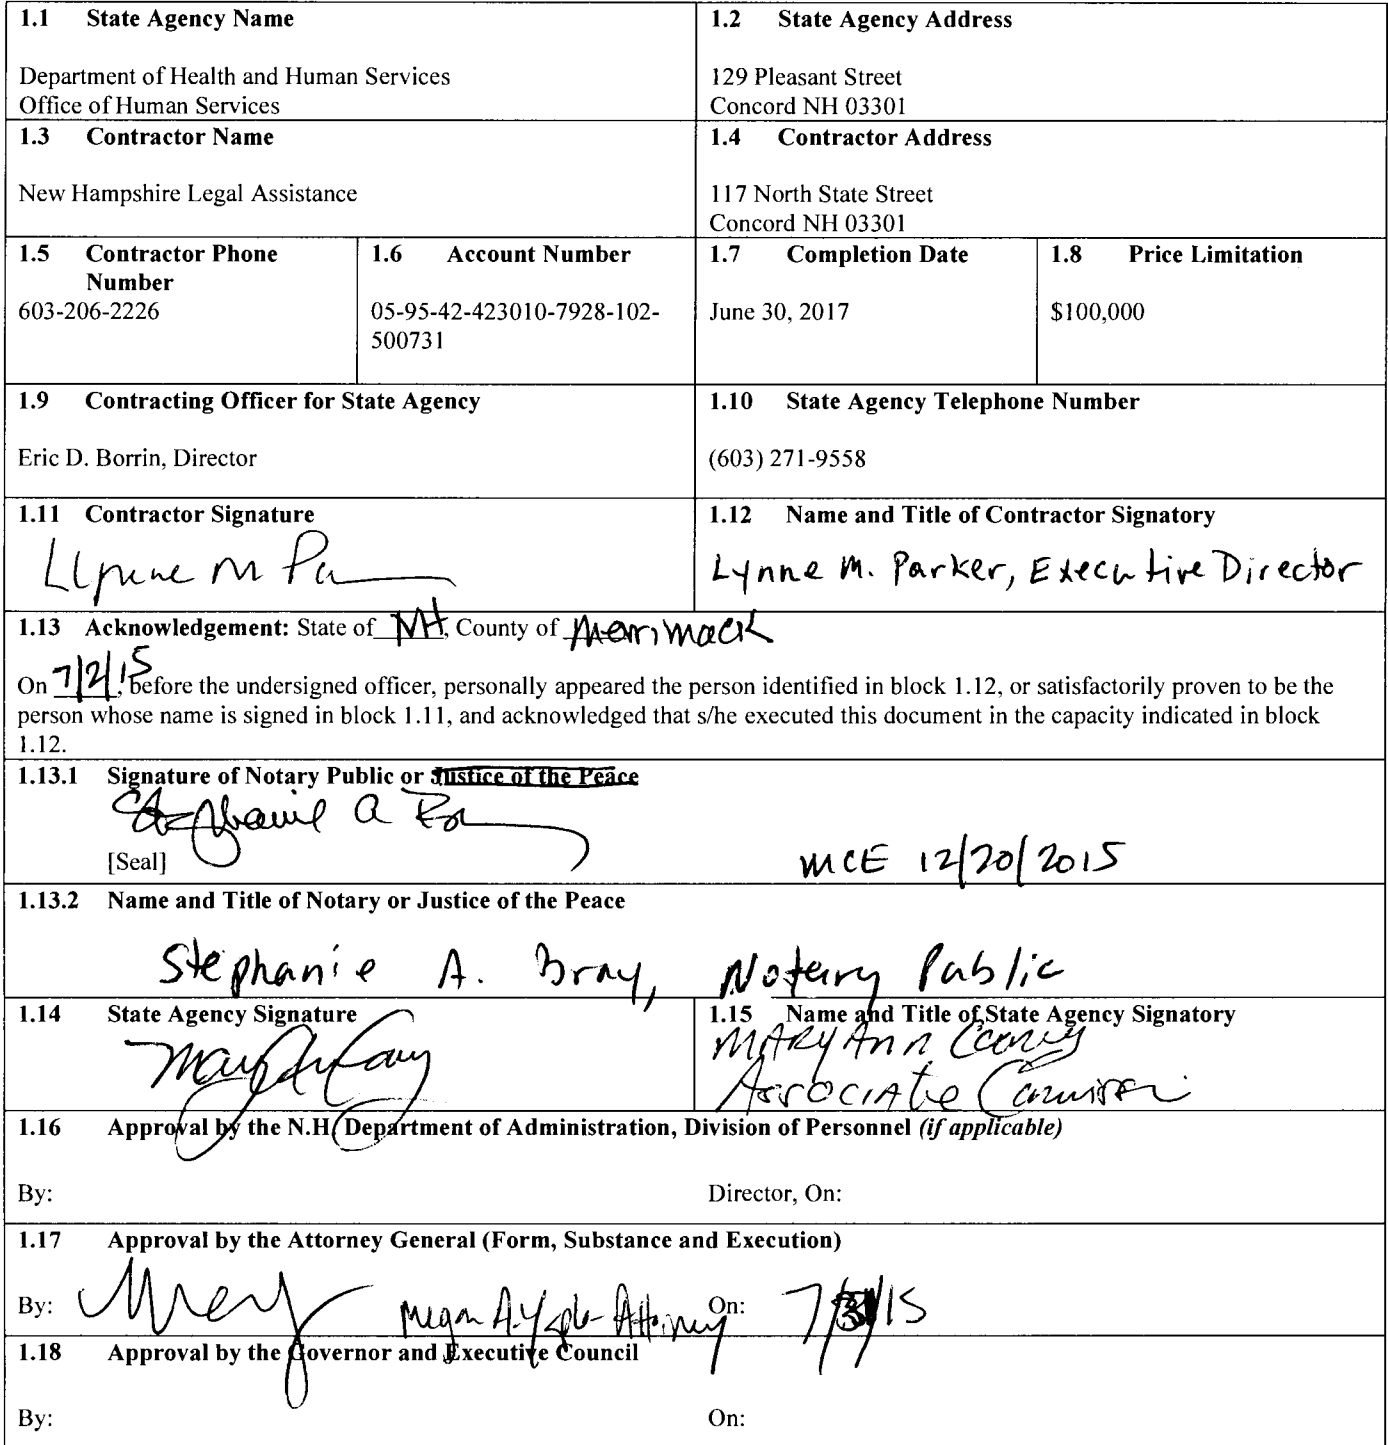 1.1 State Agency Name
Department of Health and Human Services
Office of Human Services
1.2 State Agency Address
129 Pleasant Street
Concord NH 03301
1.3 Contractor Name
New Hampshire Legal Assistance
1.4 Contractor Address
117 North State Street
Concord NH 03301
1.5 Contractor Phone
Number
603-206-2226
1.6 Account Number
05-95-42-423010-7928-102-
500731
1.7 Completion Date
June 30, 2017
1.8 Price Limitation
$100,000
1.9 Contracting Officer for State Agency
Eric D. Borrin, Director
1.10 State Agency Telephone Number
(603) 271-9558
1.11 Contractor Signature
1.12 Name and Title of Contractor Signatory
Lynne M. Parker, Executive Director
1.13 Acknowledgement: State of NH, County of Merrimack
On 7/2/15, before the undersigned officer, personally appeared the person identified in block 1.12, or satisfactorily proven to be the
person whose name is signed in block 1.11, and acknowledged that s/he executed this document in the capacity indicated in block
1.12.
1.13.1 Signature of Notary Public or Justice of the Peace
[Seal]
MCE 12/20/2015
1.13.2 Name and Title of Notary or Justice of the Peace
Stephanie A. Bray, Notary Public
1.14 State Agency Signature
1.15 Name and Title of State Agency Signatory
Mary Ann Cooney
Associate
1.16 Approval by the N.H. Department of Administration, Division of Personnel (if applicable)
By:
Director, On:
1.17 Approval by the Attorney General (Form, Substance and Execution)
By: Megan A. Attorney On:
1.18 Approval by the Governor and Executive Council
By:
On: